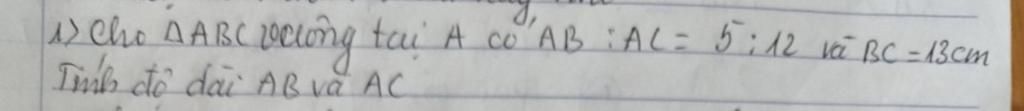 1) Cho ΔABC vuông tại A có AB : AC = 5 : 12 và BC = 13cm
Tính độ dài AB và AC